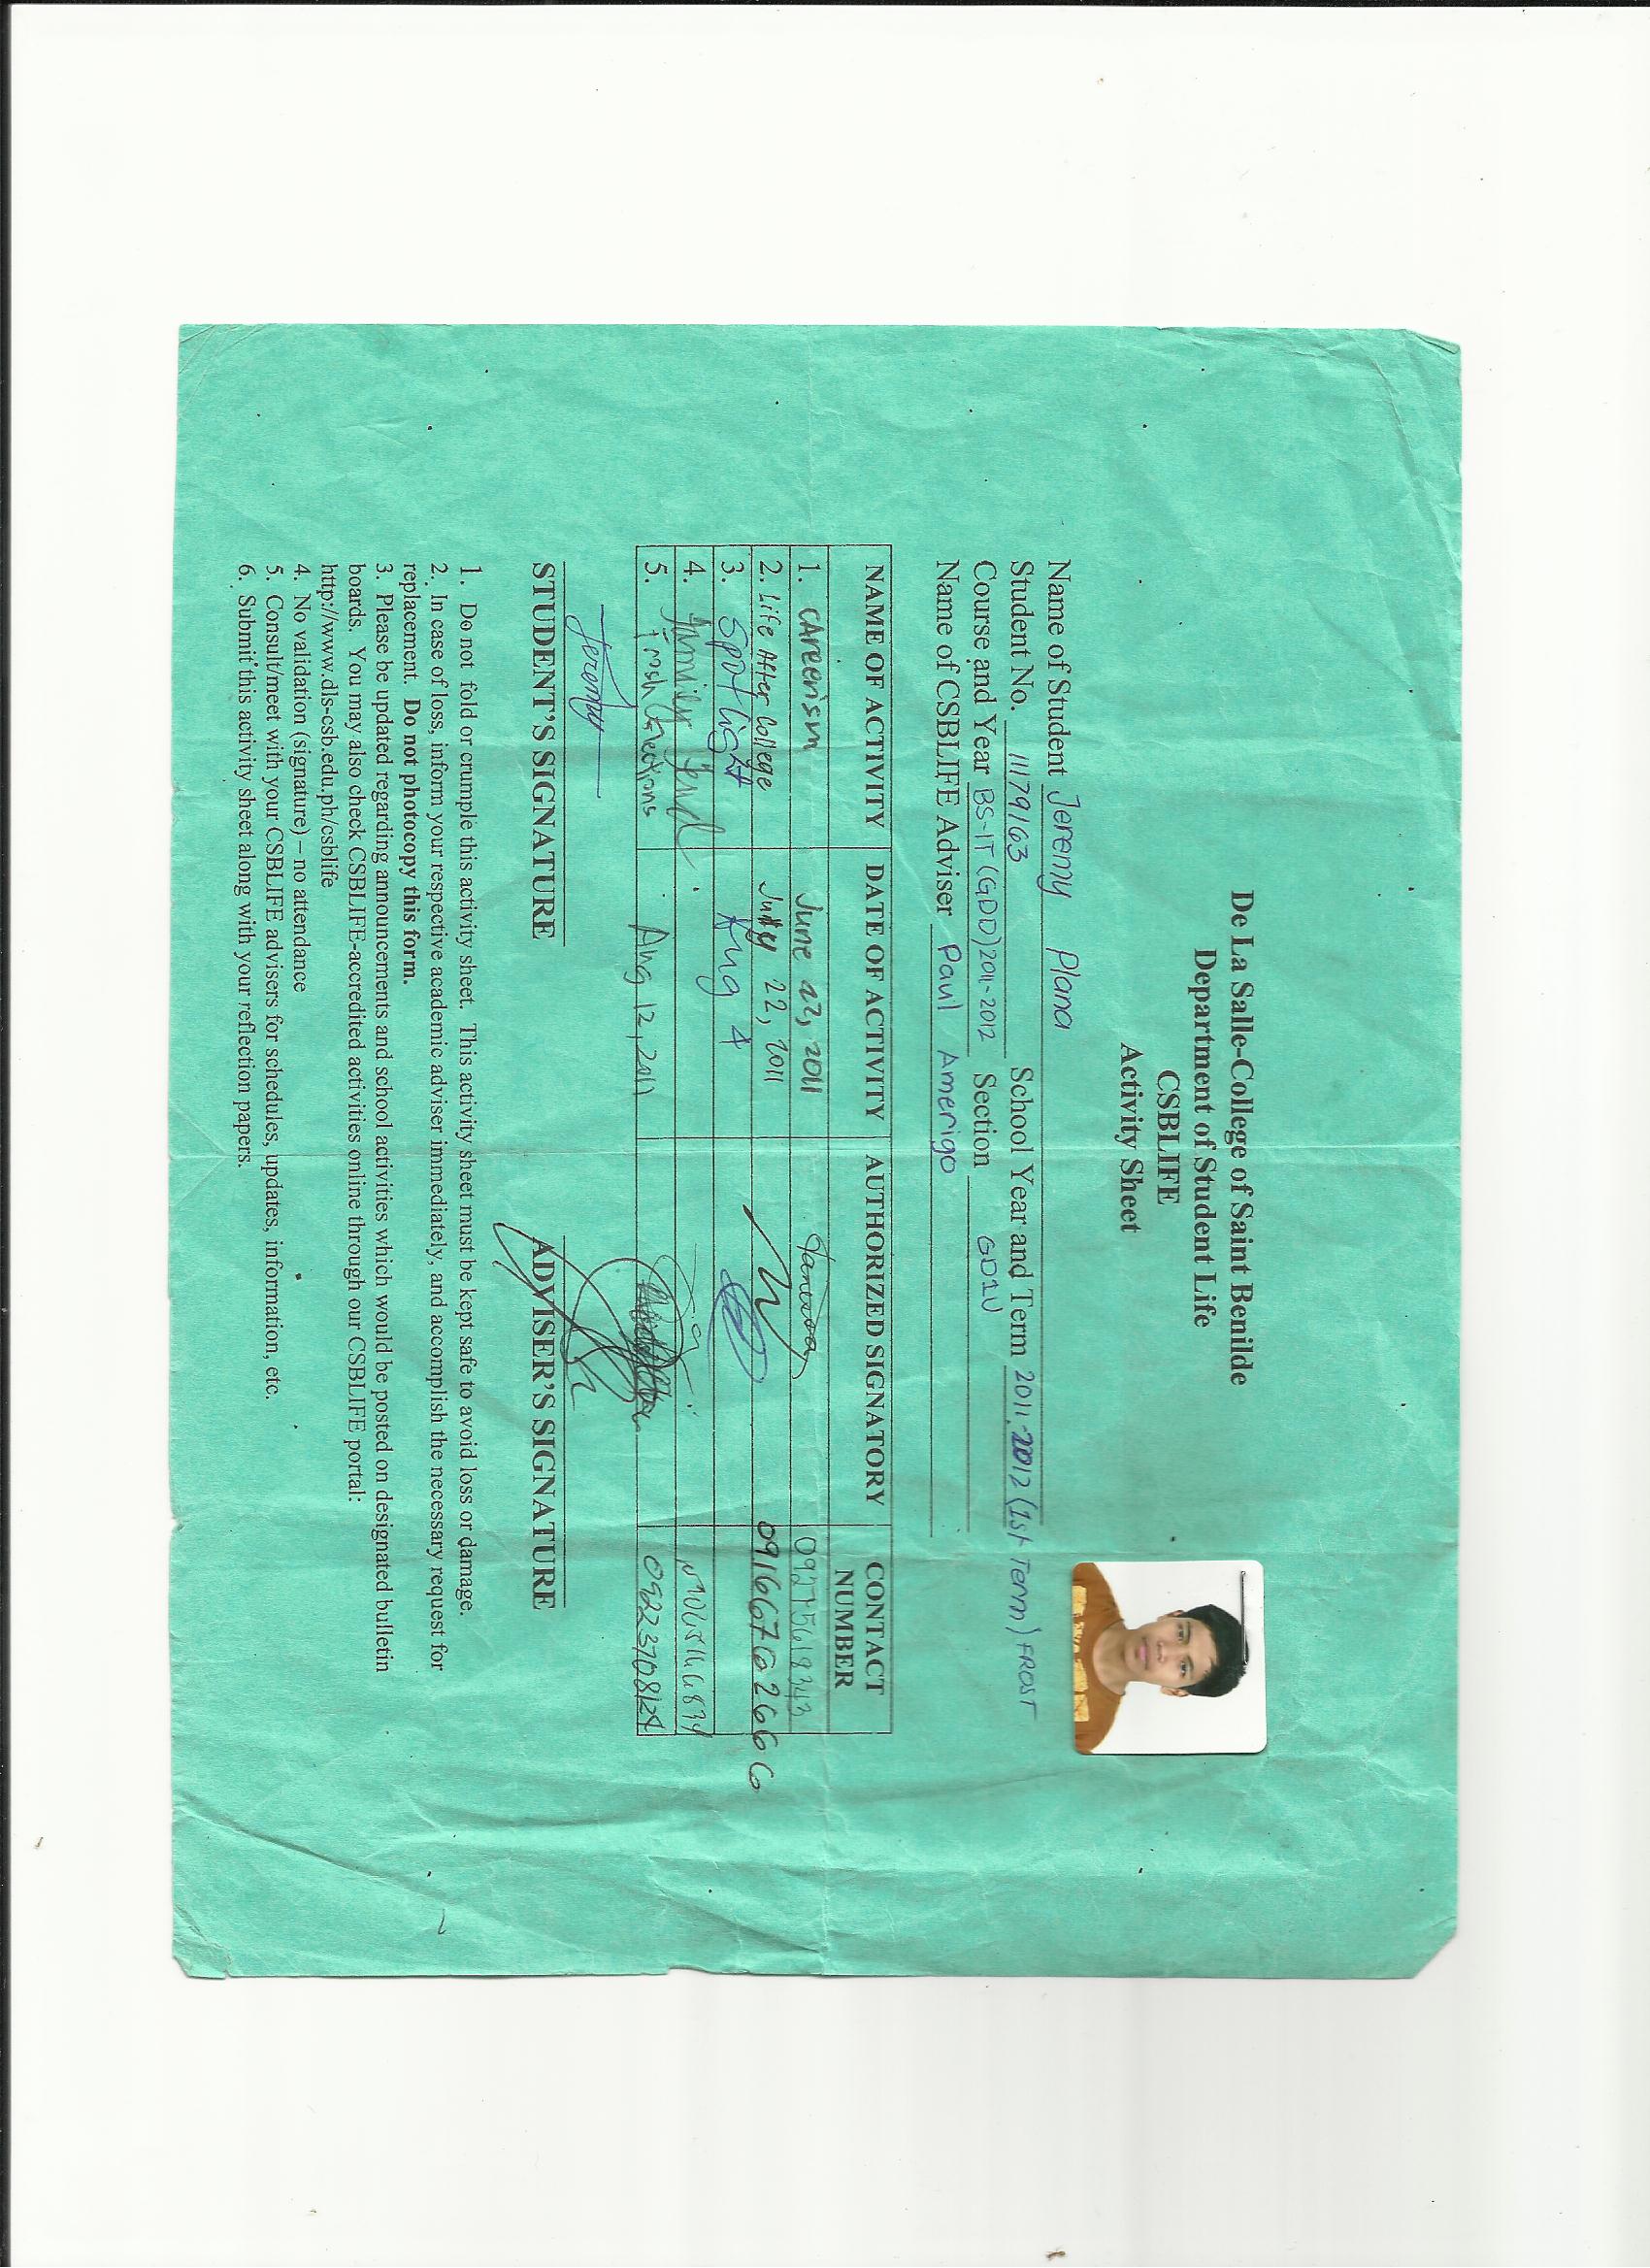 De La Salle-College of Saint Benilde
Department of Student Life
CSBLIFE
Activity Sheet
Name of Student Jeremy Plana
Student No. 11179163 School Year and Term 2011-2012 (1st Term) FROST
Course and Year BS-IT (GDD) 2011-2012 Section GD1U
Name of CSBLIFE Adviser Paul Amerigo
NAME OF ACTIVITY DATE OF ACTIVITY AUTHORIZED SIGNATORY CONTACT NUMBER
1. careerism June 22, 2011 09275618343
2. Life After College July 22, 2011 09166762666
3. Spotlight Aug 4
4. Family
5. Frosh Elections Aug 12, 2011 09223708128
Jeremy
STUDENT'S SIGNATURE ADVISER'S SIGNATURE
1. Do not fold or crumple this activity sheet. This activity sheet must be kept safe to avoid loss or damage.
2. In case of loss, inform your respective academic adviser immediately, and accomplish the necessary request for
replacement. Do not photocopy this form.
3. Please be updated regarding announcements and school activities which would be posted on designated bulletin
boards. You may also check CSBLIFE-accredited activities online through our CSBLIFE portal:
http://www.dls-csb.edu.ph/csblife
4. No validation (signature) – no attendance
5. Consult/meet with your CSBLIFE advisers for schedules, updates, information, etc.
6. Submit this activity sheet along with your reflection papers.